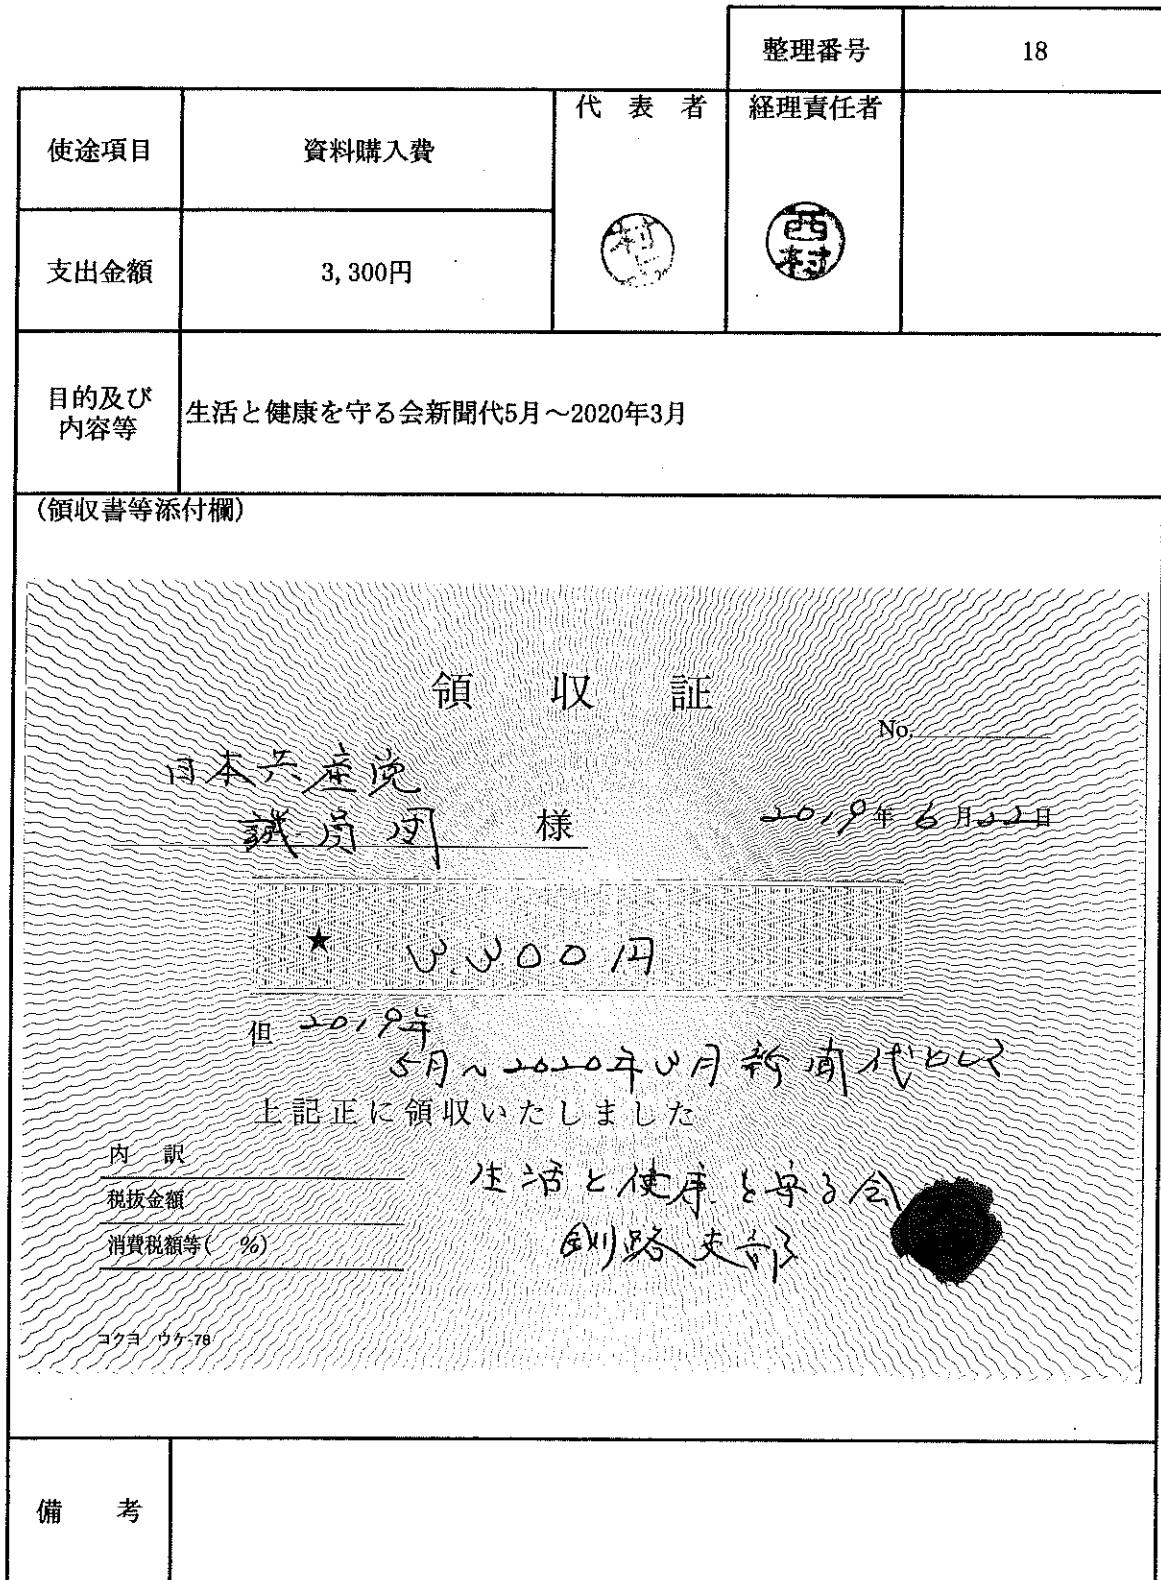 整理番号 18
代表者 経理責任者
使途項目 資料購入費
西村
支出金額 3,300円
目的及び
内容等
生活と健康を守る会新聞代5月～2020年3月
(領収書等添付欄)
領収証
No.
日本共産党
議員団 様
2019年6月22日
★ 3,300円
但 2019年
5月～2020年3月 新聞代として
上記正に領収いたしました
内訳
税抜金額
消費税額等( %)
生活と健康を守る会
釧路支部
コクヨ ウケ-78
備考